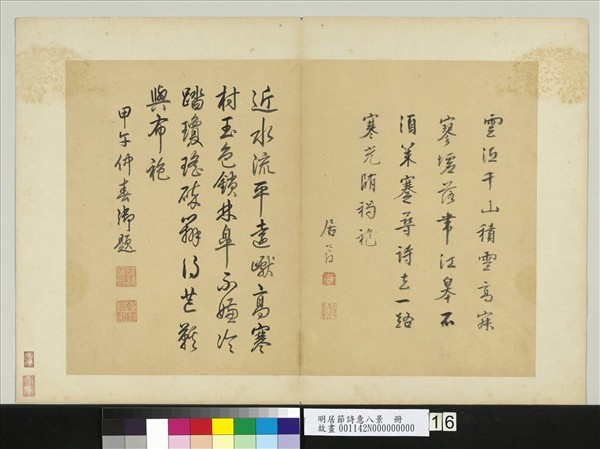 千山積雪高寂
寥墟落帶江皋不
須策蹇尋詩去一路
寒光
居節
近水流平遠巘高寒
村玉色鎖林皋不嫌冷
踏瓊瑤碎辦得芒鞵
與布袍
甲午仲春御題
明居節詩意八景 冊
故畫 001142N000000000
16